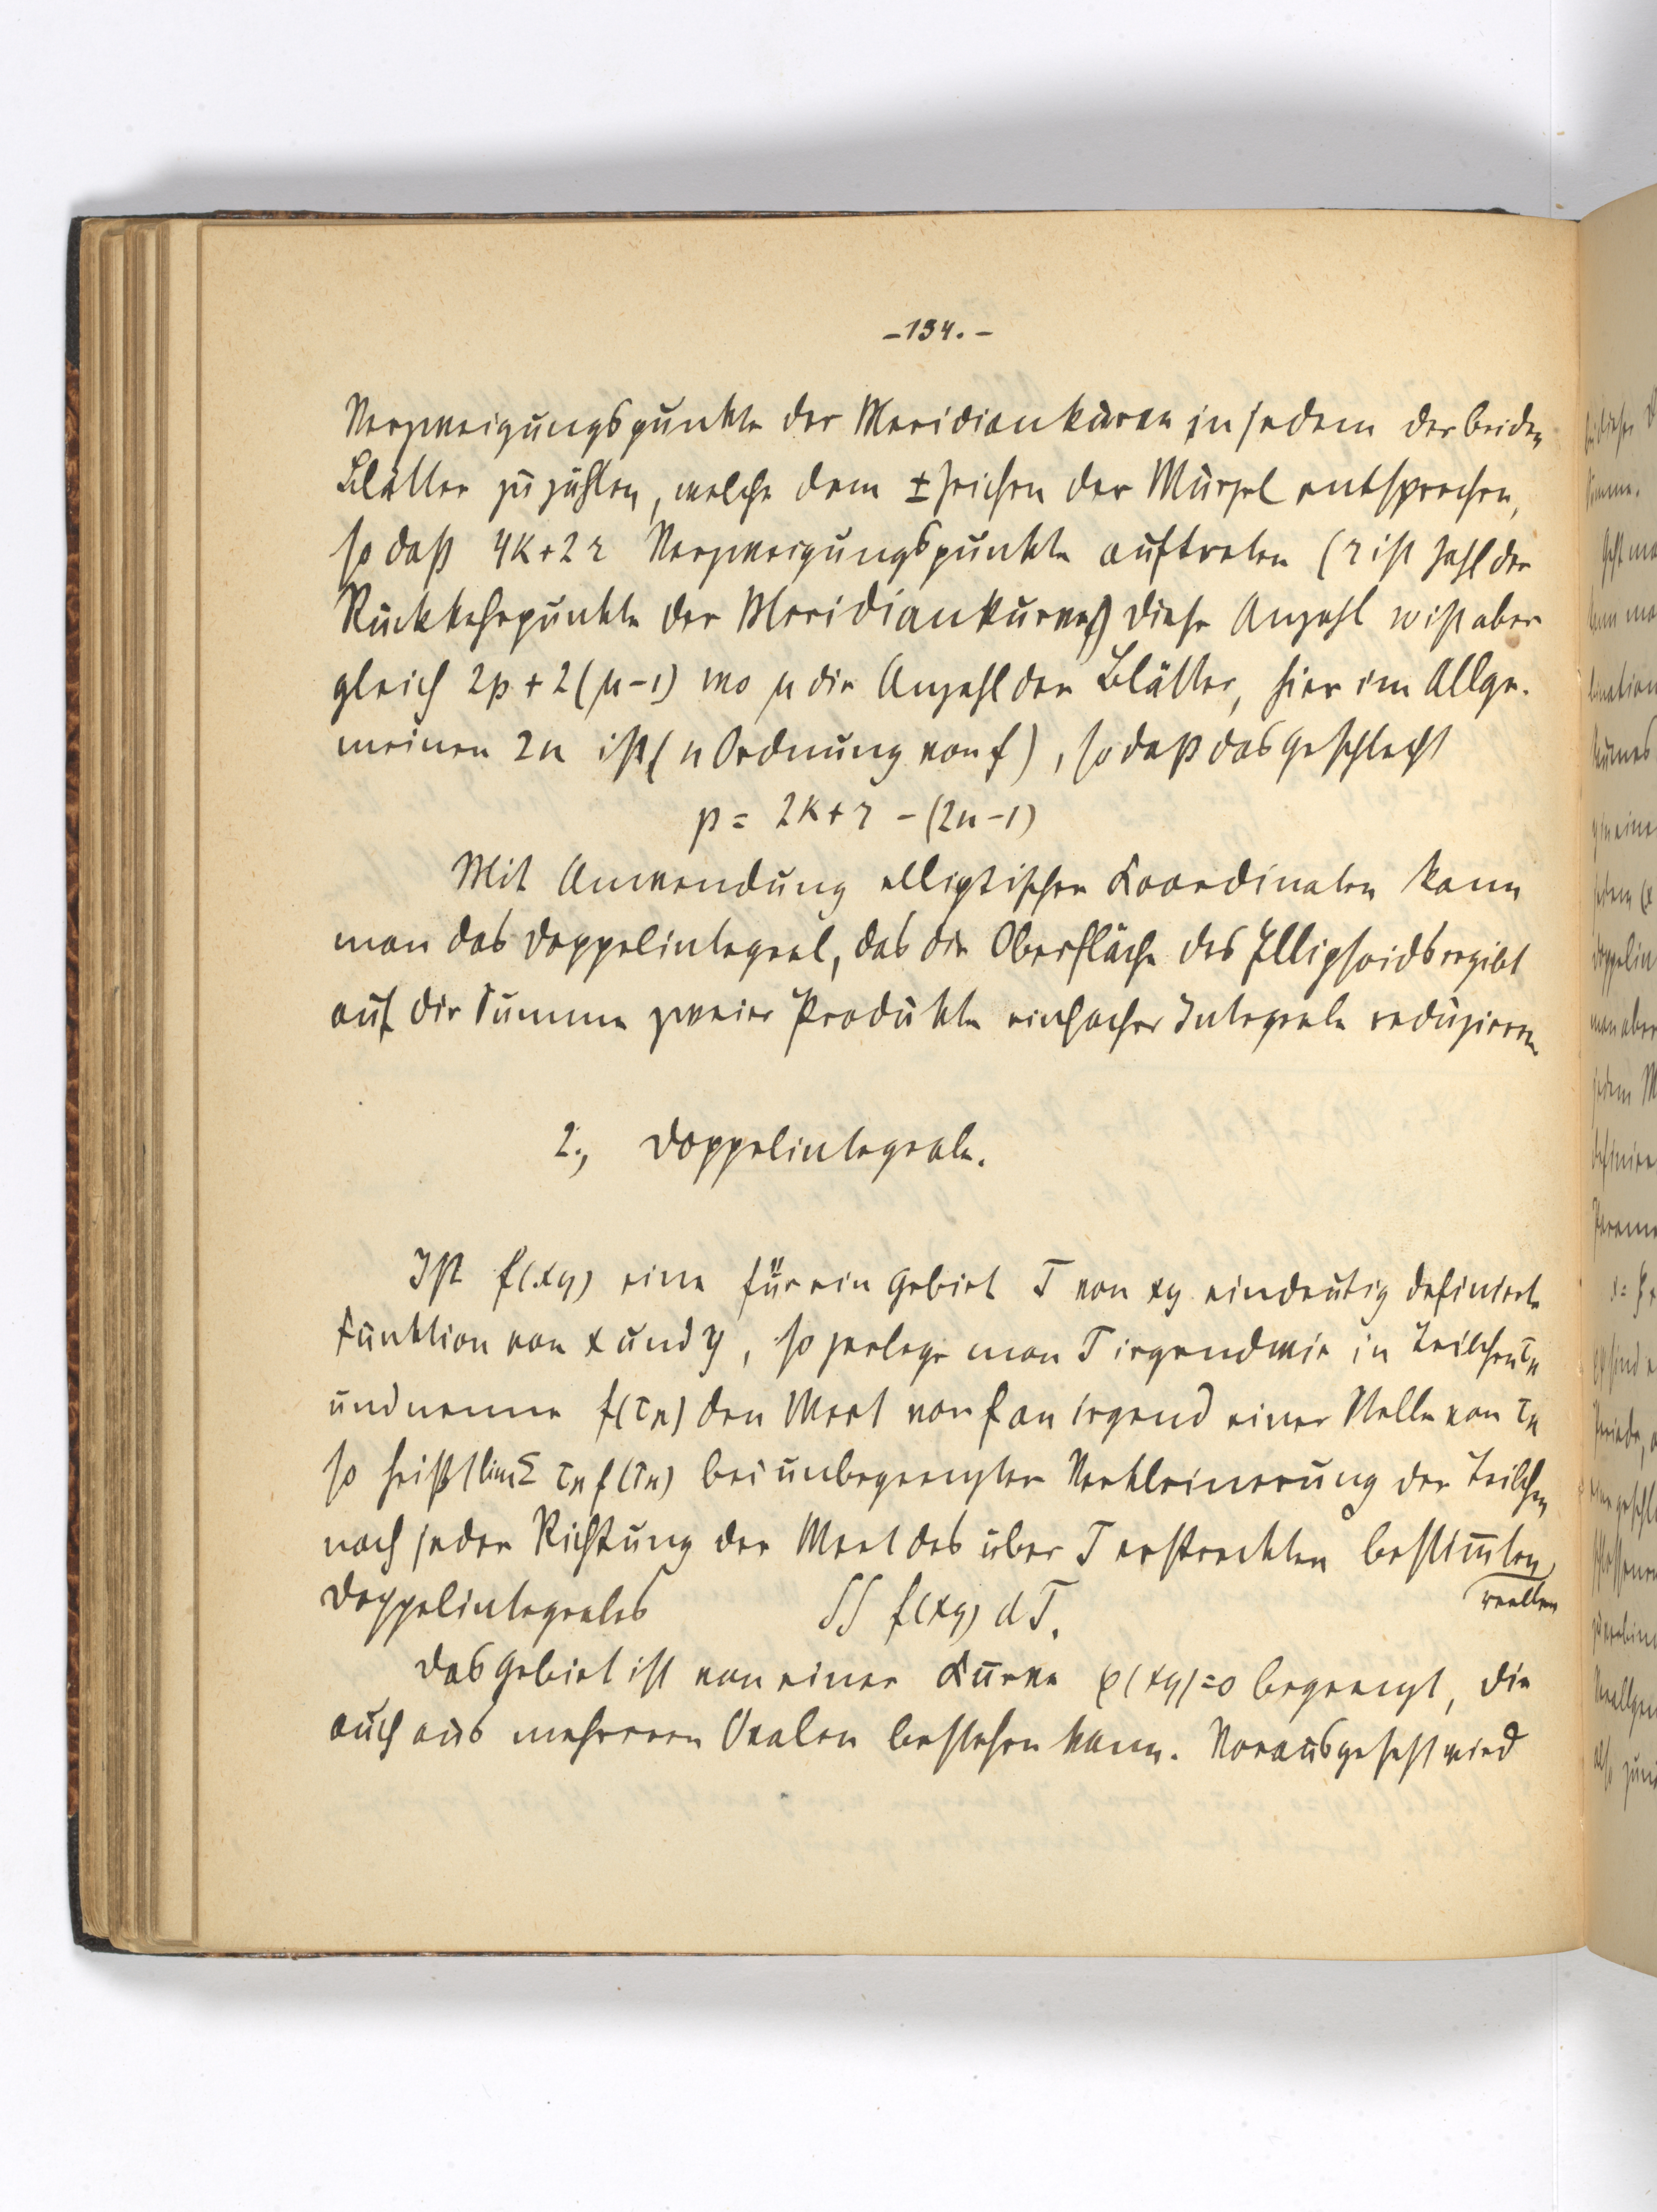 -134.-
Verzweigungspunkte der Meridiankurve in jedem der beiden
Blätter zu zählen, welche dem ± Zeichen der Wurzel entsprechen,
so daß 4k+2r Verzweigungspunkte auftreten (r ist Zahl der
Rückkehrpunkte der Meridiankurve) diese Anzahl w ist aber
gleich 2p + 2(μ-1) wo μ die Anzahl der Blätter, hier im Allge-
meinen 2n ist (n Ordnung von f), so daß das Geschlecht
p = 2k+r -(2n-1)
Mit Anwendung elliptischer Koordinaten kann
man das Doppelintegral, das die Oberfläche des Ellipsoids ergibt
auf die Summe zweier Produkte einfacher Integrale reduzieren
2., Doppelintegrale.
Ist f(xy) eine für ein Gebiet T von xy eindeutig definierte
Funktion von x und y, so zerlege man T irgendwie in Teilchen τκ
und nenne f(τκ) den Wert von f an irgend einer Stelle von τκ
so heißt lim Σ τκ f(τκ) bei unbegrenzter Verkleinerung der Teilchen
nach jeder Richtung der Wert des über T erstreckten bestim̅ten
reellen
Doppelintegrales ∫∫ f(xy) dT.
Das Gebiet ist von einer Kurve φ(xy)=0 begrenzt, die
auch aus mehreren Ovalen bestehen kann. Vorausgesetzt wird